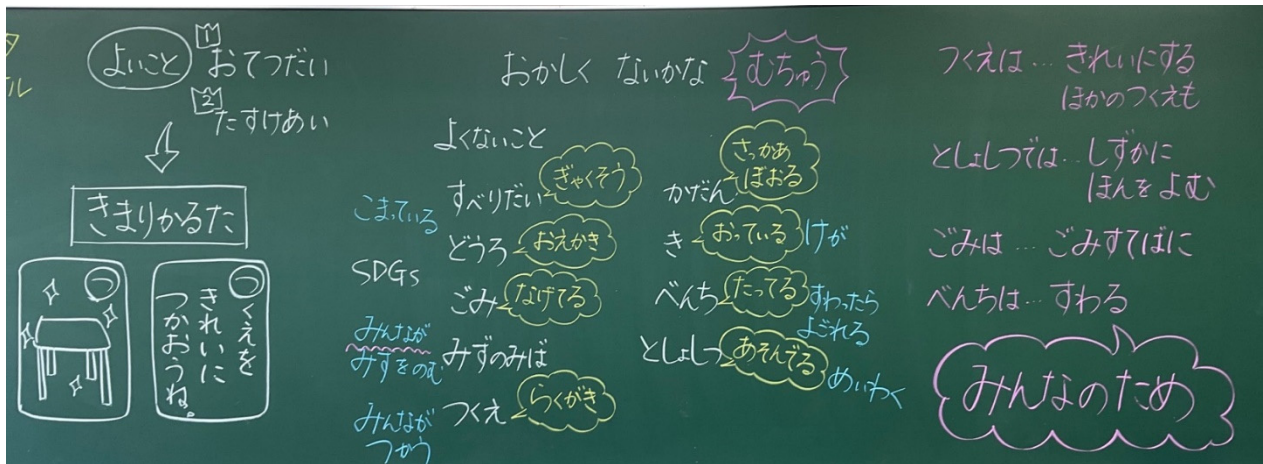 よいこと
1 おてつだい
2 たすけあい
きまりかるた
つ
つくえを
きれいに
つかおうね。
おかしく ないかな
むちゅう
よくないこと
すべりだい
ぎゃくそう
こまっている
どうろ
おえかき
SDGs
ごみ
なげてる
みんなが
みずをのむ
みずのみば
みんなが
つかう
つくえ
らくがき
かだん
さっかあ
ぼおる
き
おっている
けが
べんち
たってる
すわったら
よごれる
としょしつ
あそんでる
めいわく
つくえは… きれいにする
ほかのつくえも
としょしつでは… しずかに
ほんをよむ
ごみは… ごみすてばに
べんちは… すわる
みんなのため